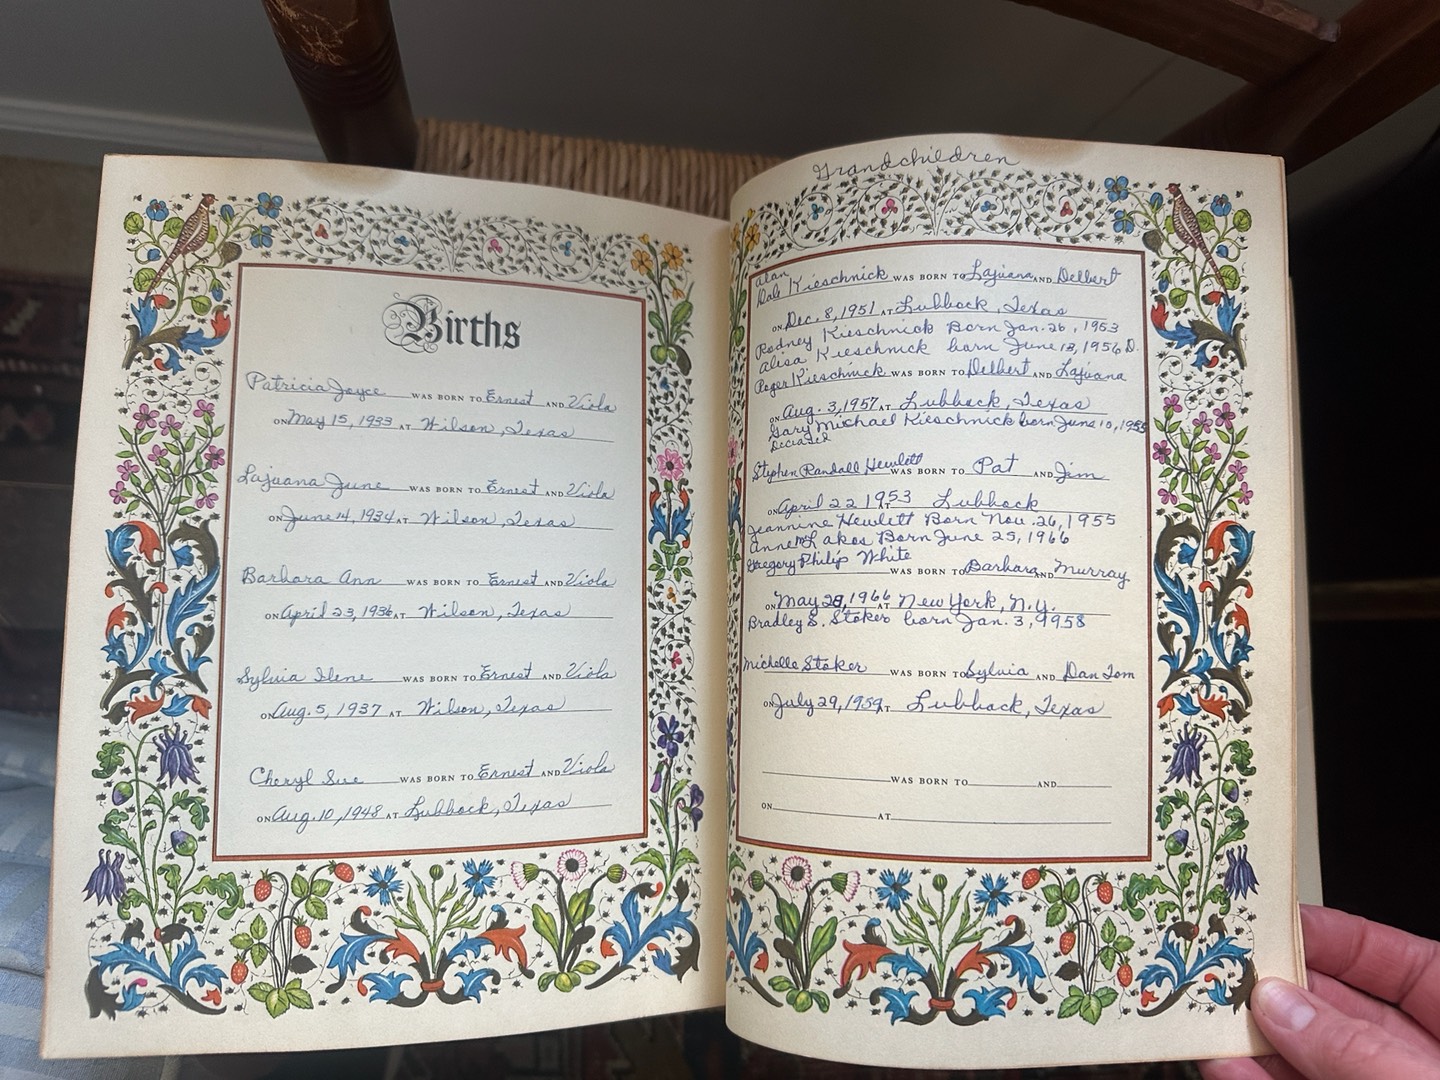 Births
Patricia Joyce WAS BORN TO Ernest AND Viola
ON May 15, 1933 AT Wilson, Texas
Lajuana June WAS BORN TO Ernest AND Viola
ON June 14, 1934 AT Wilson, Texas
Barbara Ann WAS BORN TO Ernest AND Viola
ON April 23, 1936 AT Wilson, Texas
Sylvia Ilene WAS BORN TO Ernest AND Viola
ON Aug. 5, 1937 AT Wilson, Texas
Cheryl Sue WAS BORN TO Ernest AND Viola
ON Aug. 10, 1948 AT Lubbock, Texas
Grandchildren
Alan
Dale Kieschnick WAS BORN TO Lajuana AND Delbert
ON Dec. 8, 1951 AT Lubbock, Texas
Rodney Kieschnick Born Jan. 26, 1953
Alisa Kieschnick born June 13, 1956 D.
Roger Kieschnick WAS BORN TO Delbert AND Lajuana
ON Aug. 3, 1957 AT Lubbock, Texas
Gary Michael Kieschnick born June 10, 1955
Deceased
Stephen Randall Hewlett WAS BORN TO Pat AND Jim
ON April 22 1953 AT Lubbock
Jeannine Hewlett Born Nov. 26, 1955
Anne Born June 25, 1966
Gregory Philip White WAS BORN TO Barbara AND Murray
ON May 28, 1966 AT New York, N.Y.
Bradley S. Stoker born Jan. 3, 1958
Michelle Stoker WAS BORN TO Sylvia AND Dan Tom
ON July 29, 1959 AT Lubbock, Texas
WAS BORN TO AND
ON AT